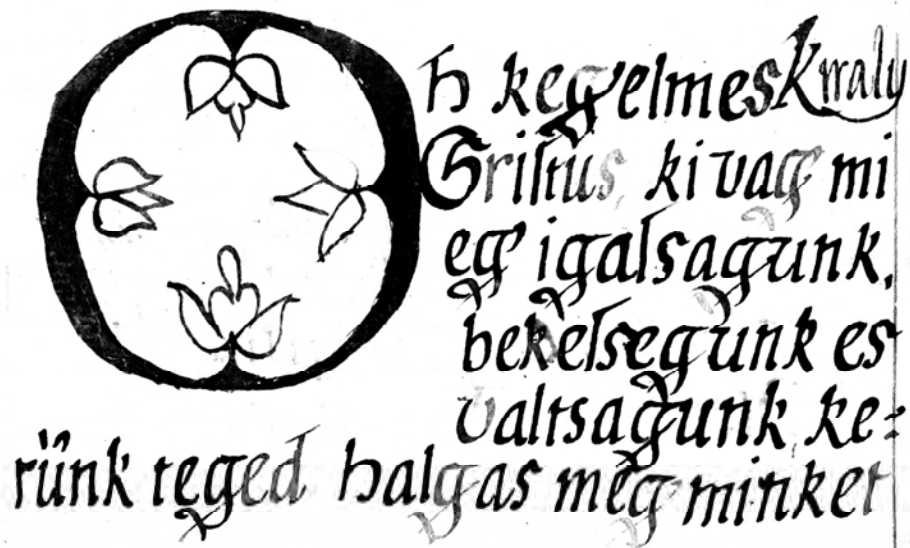 Oh kegelmes kiraly
Cristus, ki vagÿ mi
egÿ igasagunk,
bekesegunk es
valtsagunk, ke:
rünk teged halgas meg minket